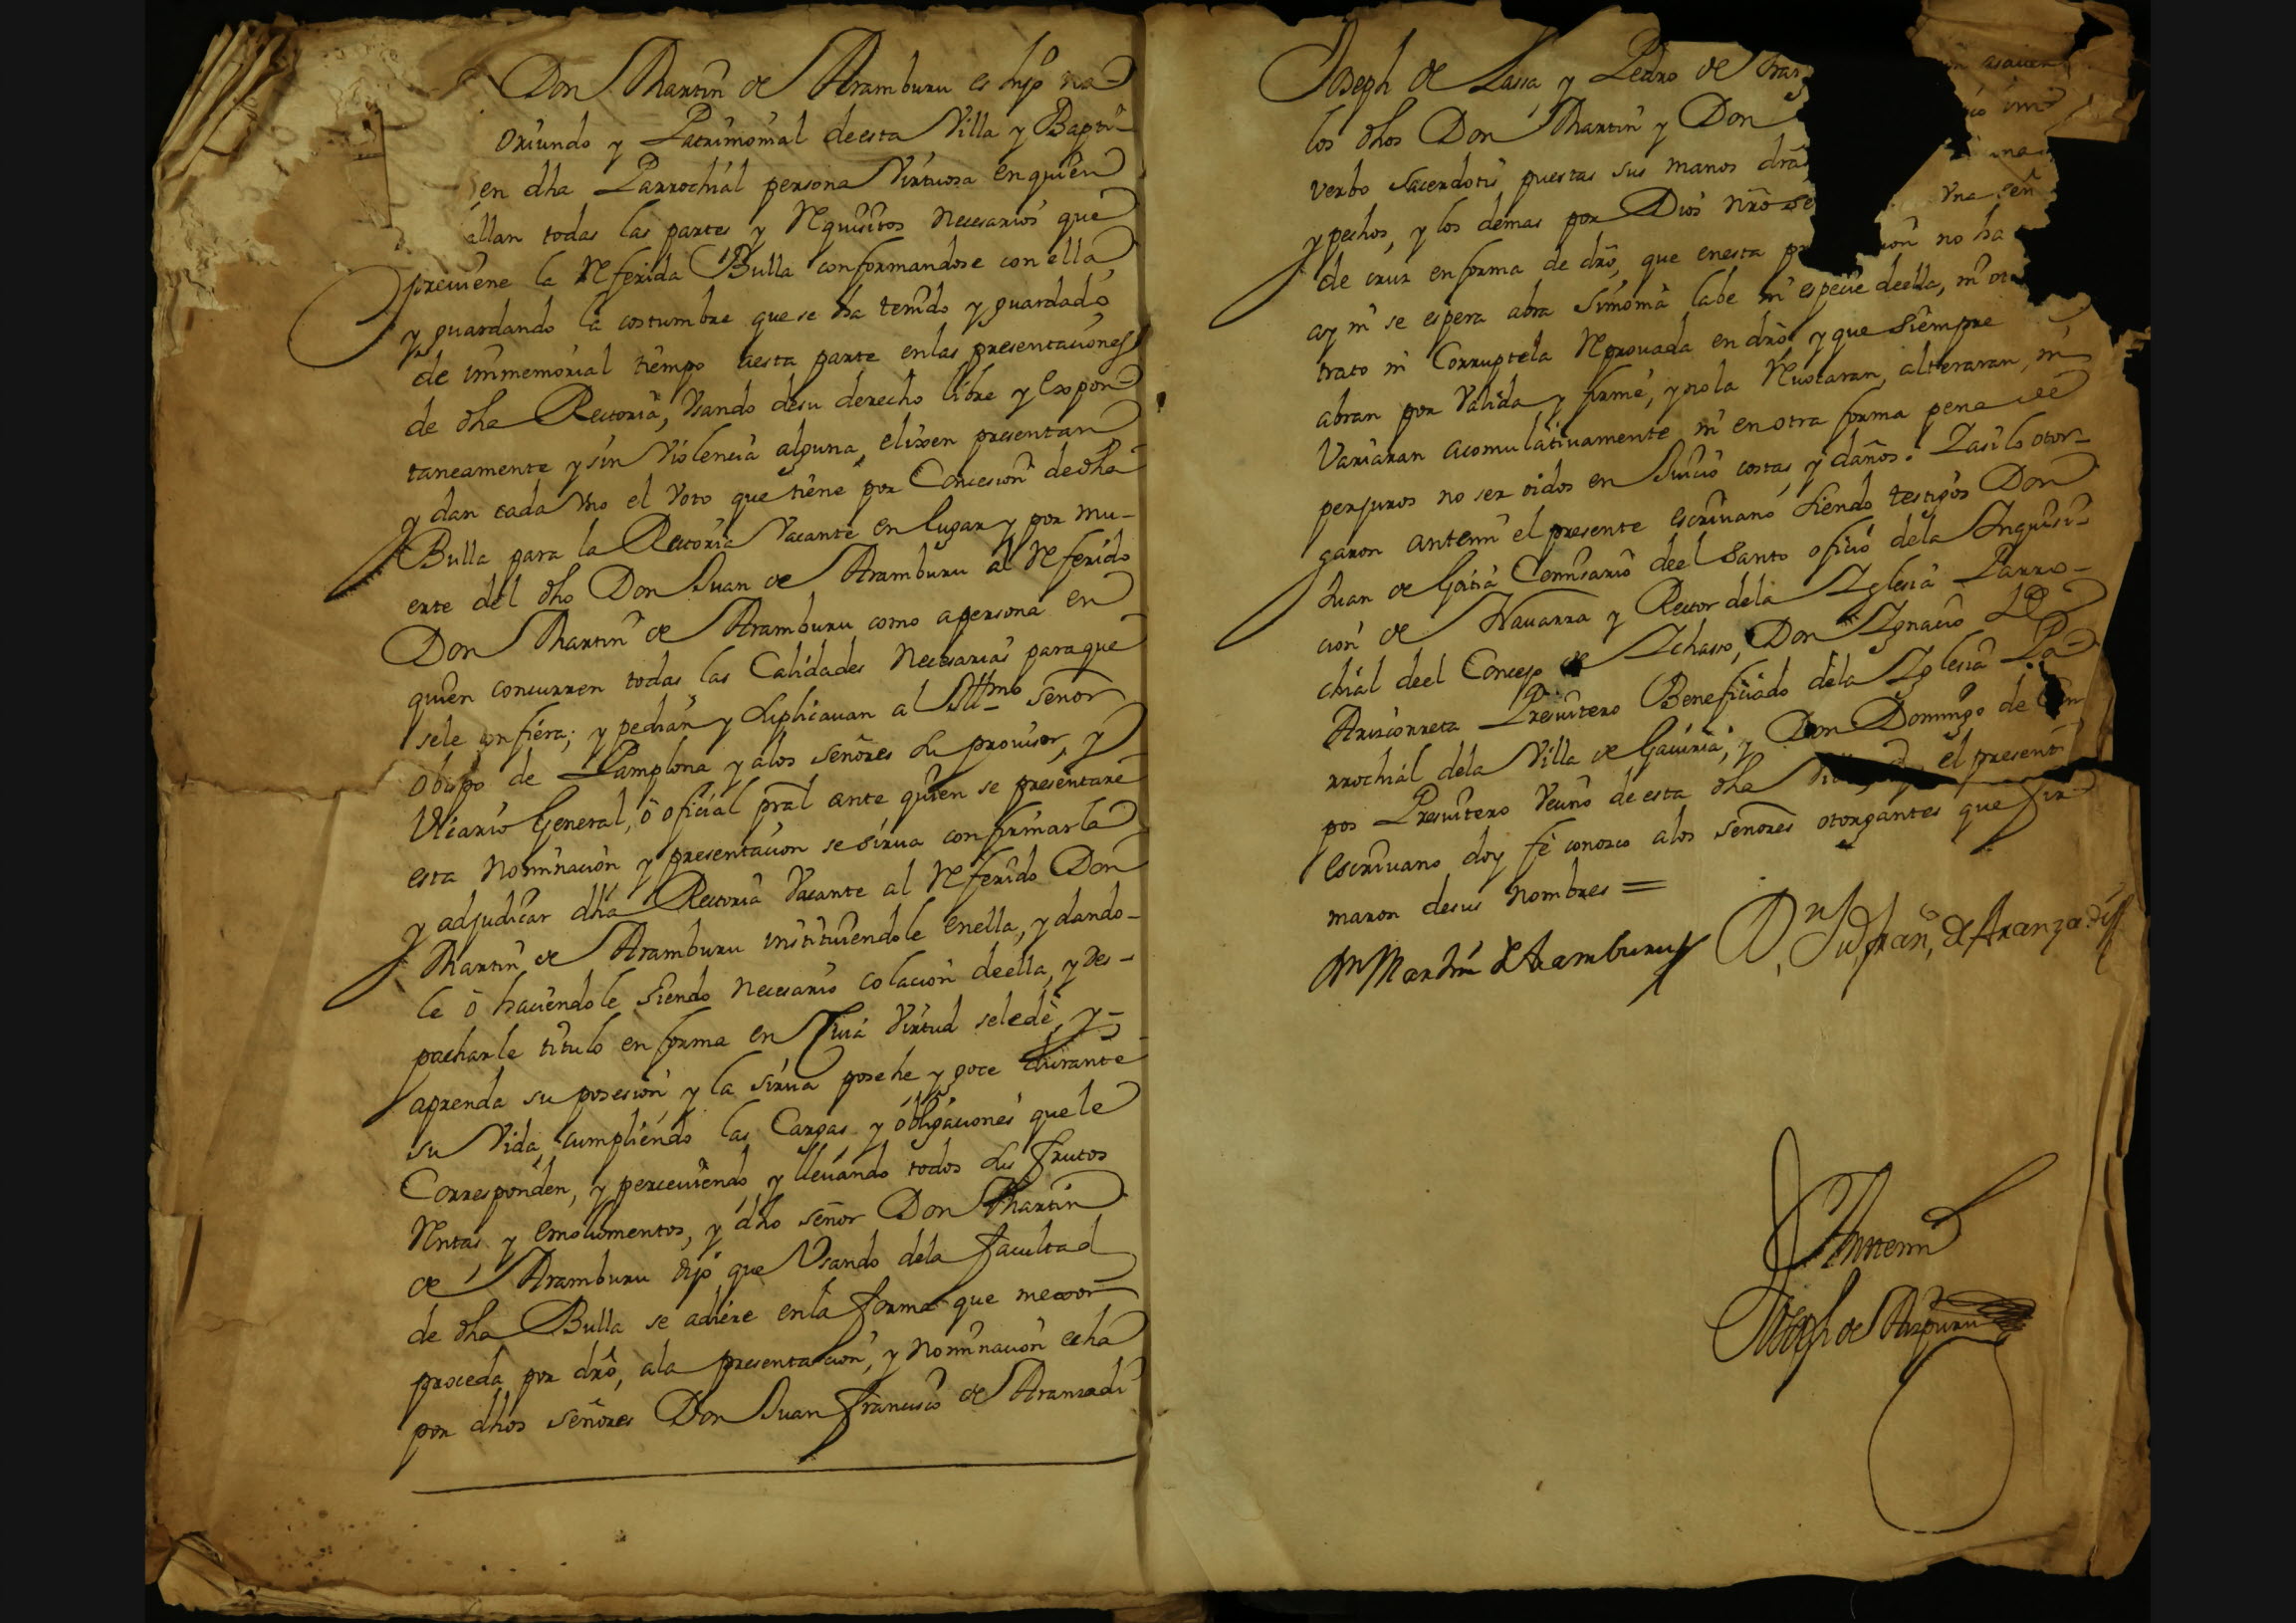 Don Martin de Aramburu es hijo na
oriundo y Patrimonial de esta Villa y Bapti
en dha Parrochial persona Virtuosa en quien
allan todas las partes y Requisitos necesarios que
previene la Referida Bulla conformandose con ella
y guardando la costumbre que se ha tenido y guardado
de immemorial tiempo aesta parte enlas presentaciones
de dha Rectoria, Vsando desu derecho libre y Expon
taneamente y sin Violencia alguna, elixen presentan
y dan cada Vno el Voto que tiene por Concesion de dha
Bulla para la Rectoria Vacante en lugar y por mu-
erte del dho Don Juan de Aramburu al Referido
Don Martin de Aramburu como apersona en
quien concurren todas las Calidades necesarias paraque
sele confiera; y pedian y suplicauan al Illmo señor
obispo de Pamplona y alos señores su prouisor, y
Vicario General, ô oficial pral ante quien se presentare
esta nominacion y presentacion se sirua confirmarla
y adjudicar dha Rectoria Vacante al Referido Don
Martin de Aramburu instituiendole enella, y dando-
le ô haciendole siendo necesario colacion deella, y des-
pacharle titulo en forma en Cuia Virtud selede, y
aprenda su posesion y la sirua posehe y goce durante
su Vida cumpliendo las Cargas y obligaciones que le
Corresponden, y perceuiendo y lleuando todos sus frutos
Rentas y emolumentos, y dho señor Don Martin
de Aramburu dijo que Vsando dela facultad
de dha Bulla se adiere enla forma que mexor
proceda por dro, ala presentacion, y nominacion echa
por dhos señores Don Juan francisco de Aranzadi
Joseph de Lasa y Pedro de
los dhos Don Martin y Don
verbo sacerdotis puestas sus manos dras
y pechos, y los demas por Dios nro se Vna señ
de cruz enforma de dro, que enesta no ha
ay ni se espera abra simonia labe ni especie deella, ni
trato ni Corruptela Reprouada en dro y que siempre
abran por Valida y firme, y nola Reuocaran, alteraran, ni
Variaran acomulatiuamente ni en otra forma pena de
perjuros no ser oidos en Juicio costas, y daños. Y asi lo otor-
garon antemi el presente escriuano siendo testigos Don
Juan de Goitia Comisario deel Santo oficio dela Inquisi
cion de Nauarra y Rector dela Iglesia Parro-
chial deel Concejo de Ichaso, Don Ignacio de
Arizcorreta Presuitero Beneficiado dela Iglesia Pa
rrochial dela Villa de Gauiria, y Don Domingo de
pos Presuitero Vecino de esta dha el present
escriuano doy fe conozco alos señores otorgantes que fir
maron desus nombres =
Dn Martin de Aramburu Dn Ju fran, de Aranzadi
Antemi
Joseph de Aizpuru